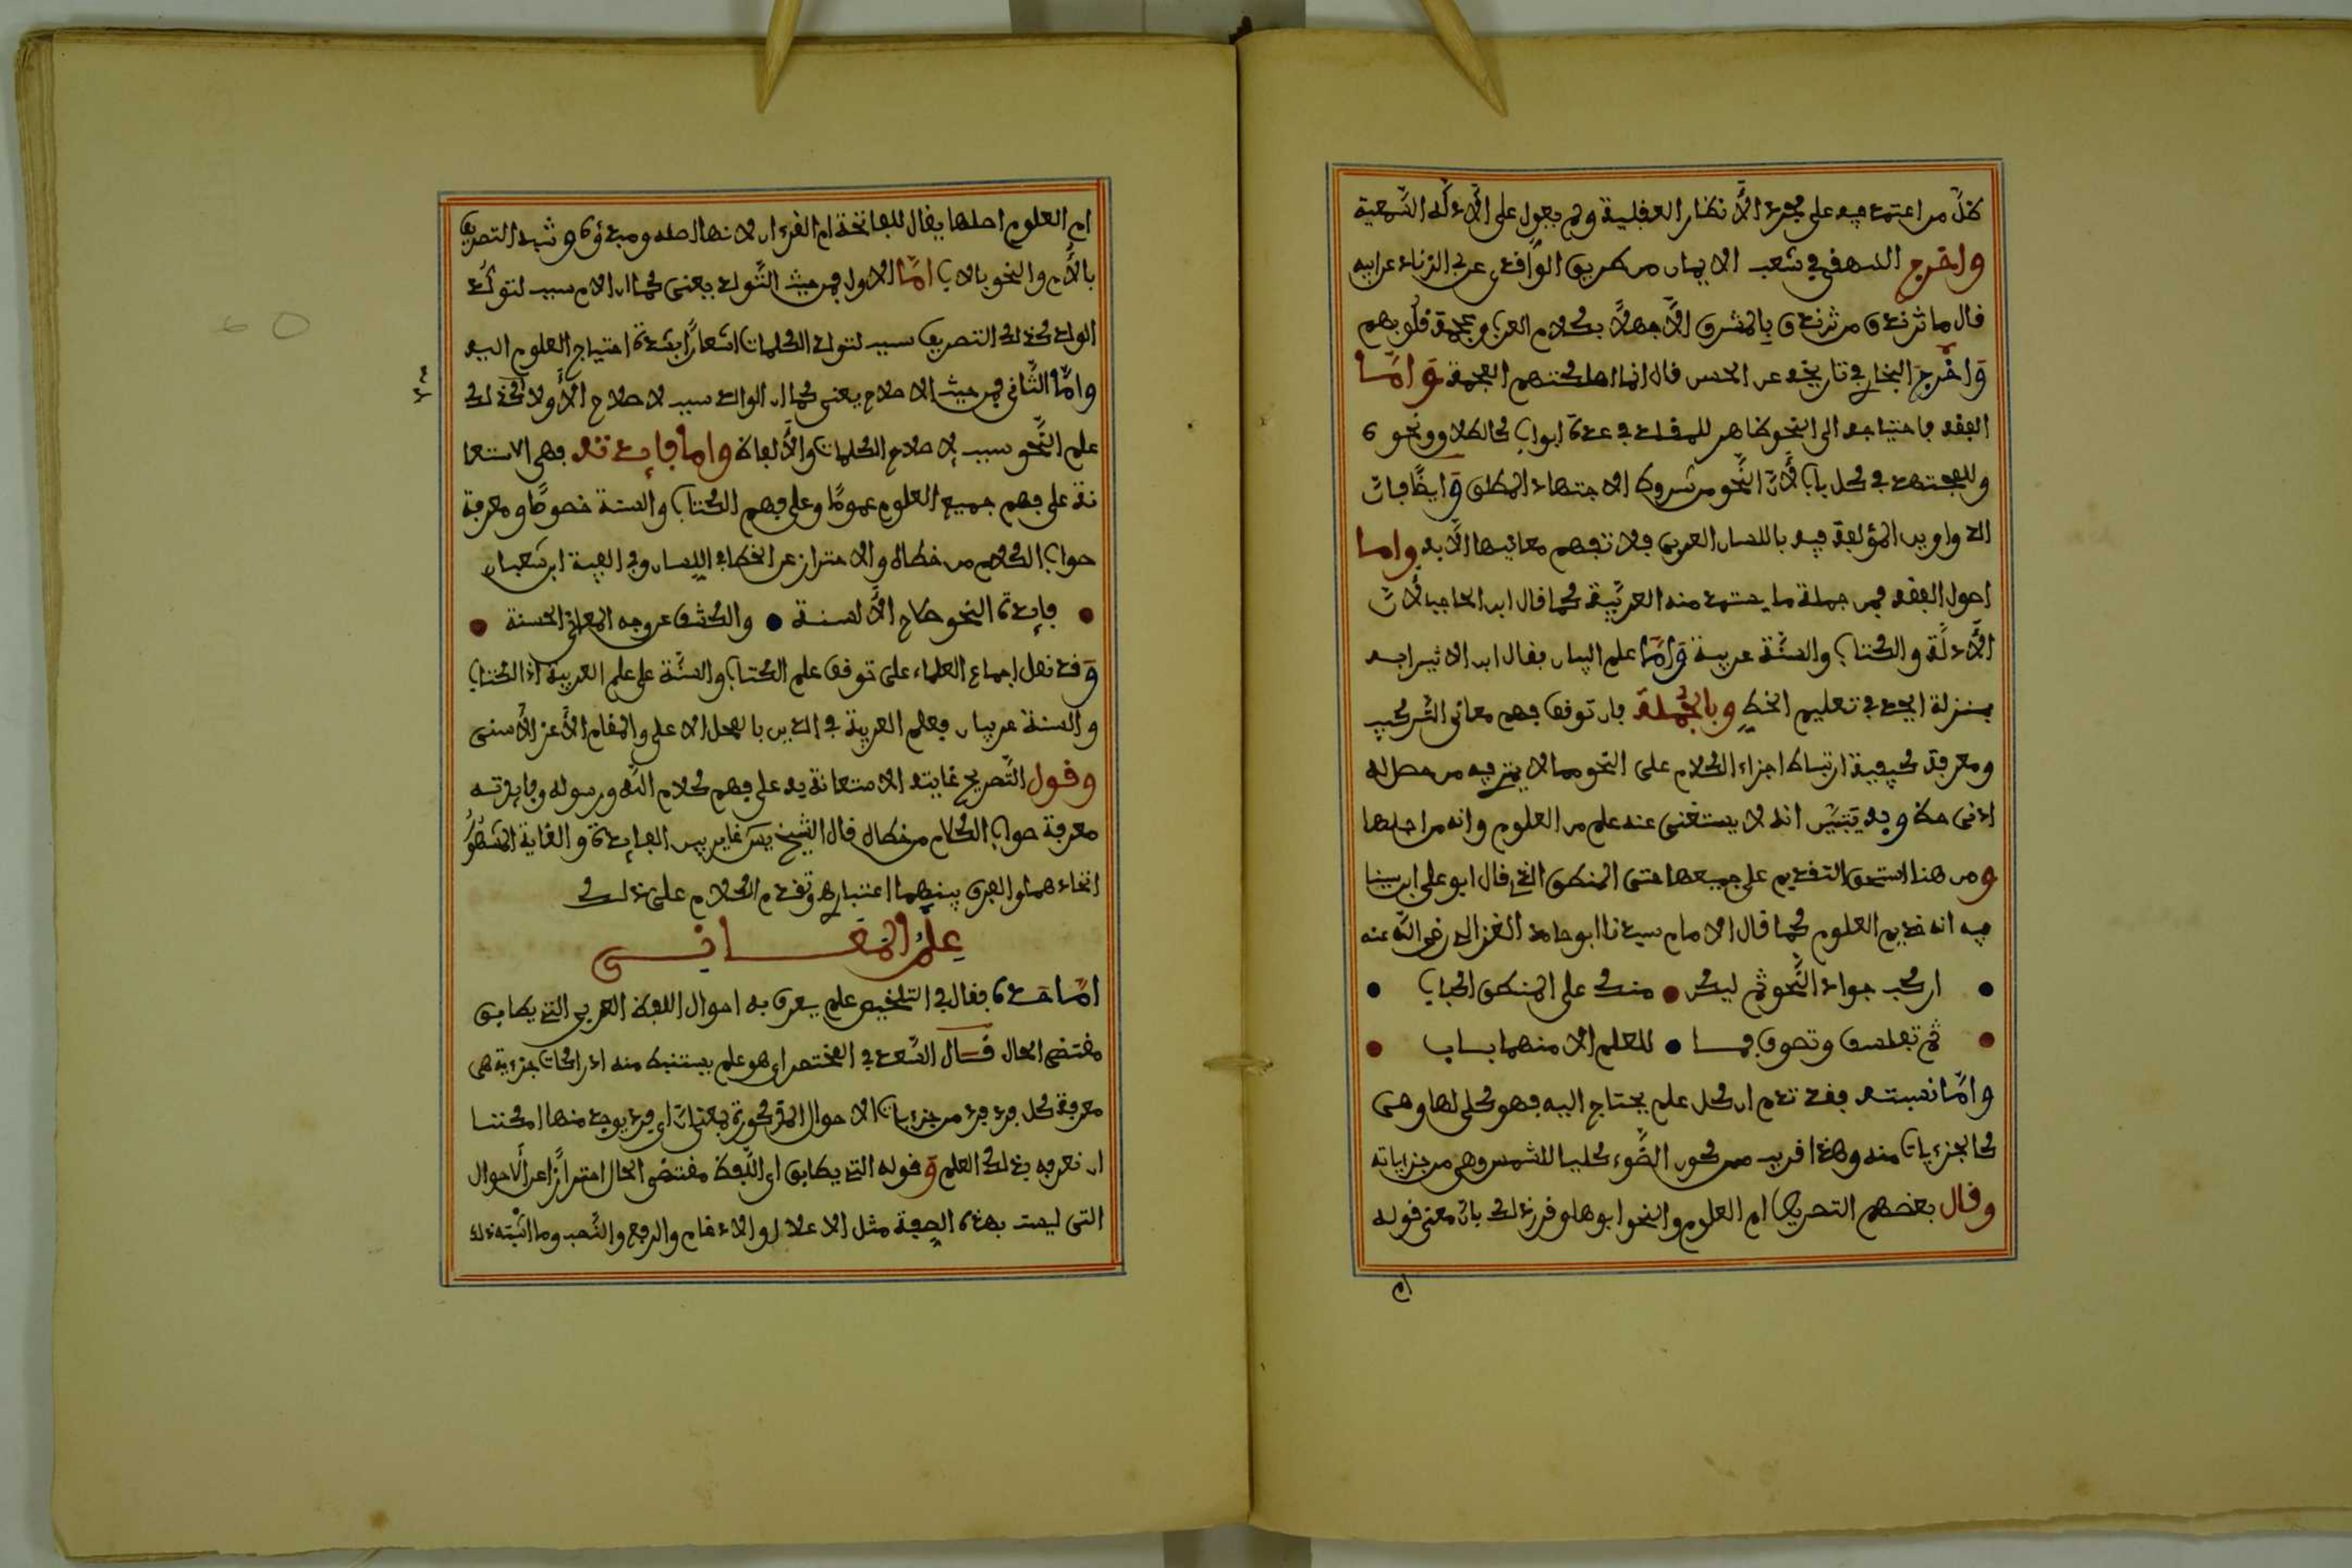 ضل من اعتمد فيه على مجرد الأنظار العقلية ولم يعول على الأدلة السمعية
واخرج البيهقي في شعب الايمان من طريق الواقدي عن ابي الزناد عن ابيه
قال ما تزندق من تزندق بالمشرق الا جهلا بكلام العرب وعجمة قلوبهم
واخرج البخاري في تاريخه عن الحسن قال انما اهلكتهم العجمة واما
الفقه فاحتياجه الى النحو ظاهر للمقلد في عدة ابواب كالطلاق ونحوه
وللمجتهد في كل باب لأن النحو من شروط الاجتهاد المطلق وايضا فان
الدواوين المؤلفة فيه باللسان العربي فلا تفهم معانيها الا به واما
اصول الفقه فمن جملة ما يستمد منه العربية كما قال ابن الحاجب لأن
الأدلة والكتاب والسنة عربية واما علم البيان فقال ابن الاثير انه
بمنزلة ابجد في تعليم الخط وبالجملة فان توقف فهم معاني التركيب
ومعرفة كيفية ارتباط اجزاء الكلام على النحو مما لا يمتري فيه من حصل له
ادنى حظ وبه يتبين انه لا يستغنى عنه علم من العلوم وانه من اجلها
ومن هنا استحق التقديم على جميعها حتى المنطق الذي قال ابو علي ابن سينا
فيه انه خديم العلوم كما قال الامام سيدنا ابو حامد الغزالي رضي الله عنه
اركب جواد النحو ثم ليكن منك على المنطق اكباب
ثم تفلسف وتصوف فما للعلم الا منهما باب
واما نسبته فقد تقدم ان كل علم يحتاج اليه فهو كلي لها وهي
كالجزئيات منه وهذا قريب من كون الضوء كليا للشمس وهي من جزئياته
وقال بعضهم التصريف ام العلوم والنحو ابوها وقرر ذلك بان معنى قوله
ام
ام العلوم اصلها يقال للفاتحة ام القرءان لانها اصله ومبدؤه وشبه التصريف
بالأم والنحو بالاب اما الاول فمن حيث التولد يعني كما ان الام سبب لتولد
الولد كذلك التصريف سبب لتولد الكلمات اشعارا بشدة احتياج العلوم اليه
واما الثاني فمن حيث الاصلاح يعني كما ان الوالد سبب لاصلاح الأولاد كذلك
علم النحو سبب لإصلاح الكلمات والألفاظ واما فائدته فهي الاستعا
نة على فهم جميع العلوم عموما وعلى فهم الكتاب والسنة خصوصا ومعرفة
صواب الكلام من خطاه والاحتراز عن الخطإ في اللسان وفي الفية ابن شعبان
فائدة النحو صلاح الألسنة والكشف عن وجه المعاني الحسنة
وقد نقل اجماع العلماء على توقف علم الكتاب والسنة على علم العربية اذ الكتاب
والسنة عربيان فعلم العربية في الدين بالمحل الاعلى والمقام الأعز الأسنى
وقول التصريح غايته الاستعانة به على فهم كلام الله ورسوله وفائدته
معرفة صواب الكلام من خطاه قال الشيخ يس غاير بين الفائدة والغاية المشهور
اتحادهما والفرق بينهما اعتباري وتقدم الكلام على ذلك
علم المعاني
اما حده فقال في التلخيص علم يعرف به احوال اللفظ العربي التي يطابق
مقتضى الحال قال السعد في المختصر اي هو علم يستنبط منه ادراكات جزئية هي
معرفة كل فرد فرد من جزئيات الاحوال المذكورة بمعنى ان اي فرد يوجد منها امكننا
ان نعرفه بذلك العلم وقوله التي يطابق اي اللفظ مقتضى الحال احترازا عن الأحوال
التي ليست بهذه الصفة مثل الاعلال والادغام والرفع والنصب وما اشبه ذلك